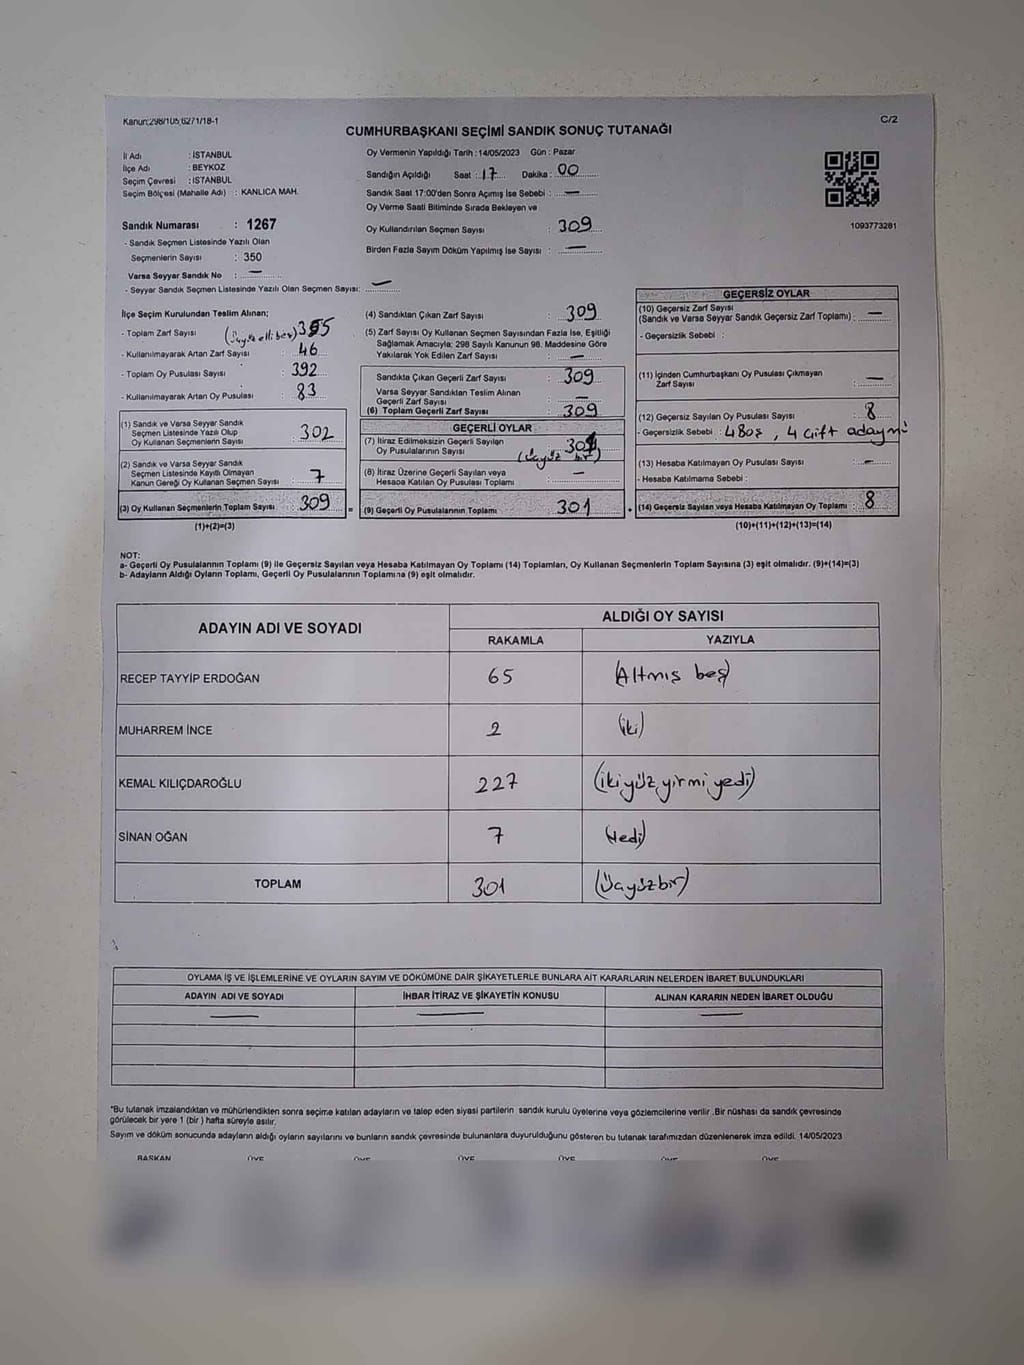 Kanun:298/105;6271/18-1
C/2
CUMHURBAŞKANI SEÇİMİ SANDIK SONUÇ TUTANAĞI
İl Adı : İSTANBUL
İlçe Adı : BEYKOZ
Seçim Çevresi : İSTANBUL
Seçim Bölgesi (Mahalle Adı) : KANLICA MAH.
Sandık Numarası : 1267
- Sandık Seçmen Listesinde Yazılı Olan
Seçmenlerin Sayısı : 350
Varsa Seyyar Sandık No : —
- Seyyar Sandık Seçmen Listesinde Yazılı Olan Seçmen Sayısı: —
Oy Vermenin Yapıldığı Tarih : 14/05/2023 Gün : Pazar
Sandığın Açıldığı Saat : 17 Dakika : 00
Sandık Saat 17:00'den Sonra Açımış İse Sebebi : —
Oy Verme Saati Bitiminde Sırada Bekleyen ve
Oy Kullandırılan Seçmen Sayısı : 309
Birden Fazla Sayım Döküm Yapılmış İse Sayısı : —
1093773281
İlçe Seçim Kurulundan Teslim Alınan;
- Toplam Zarf Sayısı (Üçyüz elli beş) 355
- Kullanılmayarak Artan Zarf Sayısı : 46
- Toplam Oy Pusulası Sayısı : 392
- Kullanılmayarak Artan Oy Pusulası : 83
(1) Sandık ve Varsa Seyyar Sandık
Seçmen Listesinde Yazılı Olup
Oy Kullanan Seçmenlerin Sayısı : 302
(2) Sandık ve Varsa Seyyar Sandık
Seçmen Listesinde Kayıtlı Olmayan
Kanun Gereği Oy Kullanan Seçmen Sayısı : 7
(3) Oy Kullanan Seçmenlerin Toplam Sayısı : 309 =
(1)+(2)=(3)
(4) Sandıktan Çıkan Zarf Sayısı : 309
(5) Zarf Sayısı Oy Kullanan Seçmen Sayısından Fazla İse, Eşitliği
Sağlamak Amacıyla; 298 Sayılı Kanunun 98. Maddesine Göre
Yakılarak Yok Edilen Zarf Sayısı : —
Sandıkta Çıkan Geçerli Zarf Sayısı : 309
Varsa Seyyar Sandıktan Teslim Alınan
Geçerli Zarf Sayısı : —
(6) Toplam Geçerli Zarf Sayısı : 309
GEÇERLİ OYLAR
(7) İtiraz Edilmeksizin Geçerli Sayılan
Oy Pusulalarının Sayısı : 301
(Üçyüz bir)
(8) İtiraz Üzerine Geçerli Sayılan veya
Hesaba Katılan Oy Pusulası Toplamı : —
(9) Geçerli Oy Pusulalarının Toplamı : 301 +
GEÇERSİZ OYLAR
(10) Geçersiz Zarf Sayısı
(Sandık ve Varsa Seyyar Sandık Geçersiz Zarf Toplamı) : —
- Geçersizlik Sebebi :
(11) İçinden Cumhurbaşkanı Oy Pusulası Çıkmayan
Zarf Sayısı : —
(12) Geçersiz Sayılan Oy Pusulası Sayısı : 8
- Geçersizlik Sebebi : 4 Boş, 4 Çift aday mü
(13) Hesaba Katılmayan Oy Pusulası Sayısı : —
- Hesaba Katılmama Sebebi :
(14) Geçersiz Sayılan veya Hesaba Katılmayan Oy Toplamı : 8
(10)+(11)+(12)+(13)=(14)
NOT:
a- Geçerli Oy Pusulalarının Toplamı (9) ile Geçersiz Sayılan veya Hesaba Katılmayan Oy Toplamı (14) Toplamları, Oy Kullanan Seçmenlerin Toplam Sayısına (3) eşit olmalıdır. (9)+(14)=(3)
b- Adayların Aldığı Oyların Toplamı, Geçerli Oy Pusulalarının Toplamına (9) eşit olmalıdır.
ADAYIN ADI VE SOYADI
ALDIĞI OY SAYISI
RAKAMLA YAZIYLA
RECEP TAYYİP ERDOĞAN 65 (Altmış beş)
MUHARREM İNCE 2 (iki)
KEMAL KILIÇDAROĞLU 227 (ikiyüz yirmi yedi)
SİNAN OĞAN 7 (Yedi)
TOPLAM 301 (Üçyüzbir)
OYLAMA İŞ VE İŞLEMLERİNE VE OYLARIN SAYIM VE DÖKÜMÜNE DAİR ŞİKAYETLERLE BUNLARA AİT KARARLARIN NELERDEN İBARET BULUNDUKLARI
ADAYIN ADI VE SOYADI İHBAR İTİRAZ VE ŞİKAYETİN KONUSU ALINAN KARARIN NEDEN İBARET OLDUĞU
— — —
*Bu tutanak imzalandıktan ve mühürlendikten sonra seçime katılan adayların ve talep eden siyasi partilerin sandık kurulu üyelerine veya gözlemcilerine verilir .Bir nüshası da sandık çevresinde
görülecek bir yere 1 (bir ) hafta süreyle asılır.
Sayım ve döküm sonucunda adayların aldığı oyların sayılarını ve bunların sandık çevresinde bulunanlara duyurulduğunu gösteren bu tutanak tarafımızdan düzenlenerek imza edildi. 14/05/2023
BAŞKAN ÜYE ÜYE ÜYE ÜYE ÜYE ÜYE